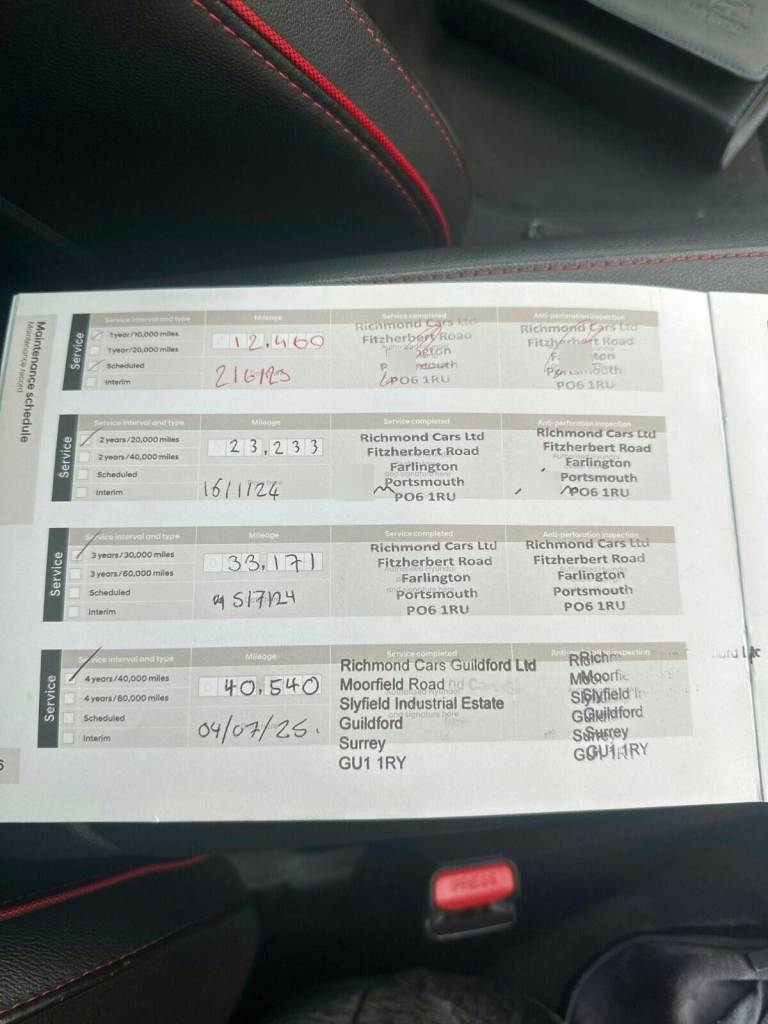 Maintenance schedule
Maintenance record
Service
Service interval and type
1 year/10,000 miles
1 year/20,000 miles
Scheduled
Interim
Mileage
12,460
2/6/23
Service completed
Richmond Cars Ltd
Fitzherbert Road
PO6 1RU
Anti-perforation inspection
Richmond Cars Ltd
Fitzherbert Road
Portsmouth
PO6 1RU
Service
Service interval and type
2 years/20,000 miles
2 years/40,000 miles
Scheduled
Interim
Mileage
23,233
16/1/24
Service completed
Richmond Cars Ltd
Fitzherbert Road
Farlington
Portsmouth
PO6 1RU
Anti-perforation inspection
Richmond Cars Ltd
Fitzherbert Road
Farlington
Portsmouth
PO6 1RU
Service
Service interval and type
3 years/30,000 miles
3 years/60,000 miles
Scheduled
Interim
Mileage
33,171
5/7/24
Service completed
Richmond Cars Ltd
Fitzherbert Road
Farlington
Portsmouth
PO6 1RU
Anti-perforation inspection
Richmond Cars Ltd
Fitzherbert Road
Farlington
Portsmouth
PO6 1RU
Service
Service interval and type
4 years/40,000 miles
4 years/80,000 miles
Scheduled
Interim
Mileage
40,540
04/07/25.
Service completed
Richmond Cars Guildford Ltd
Moorfield Road
Slyfield Industrial Estate
Guildford
Surrey
GU1 1RY
Slyfield
Guildford
Surrey
GU1 1RY
PRESS